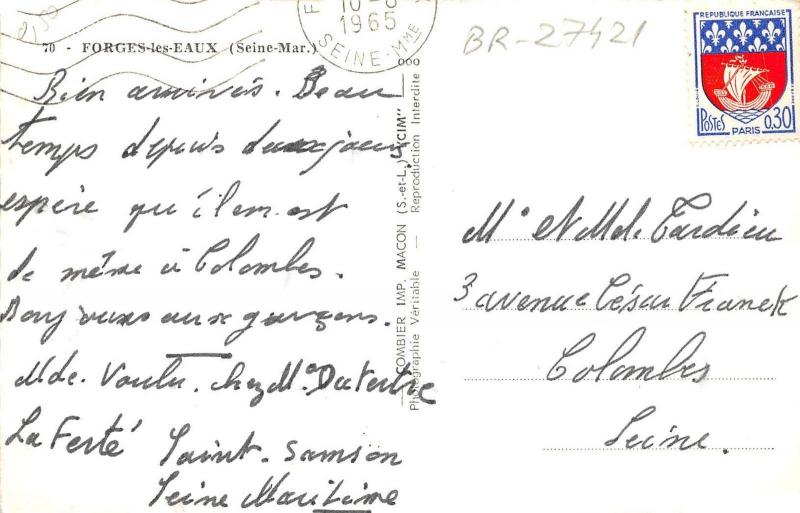 70 - FORGES-les-EAUX (Seine-Mar.)
1965
SEINE-Mme
BR-27421
REPUBLIQUE FRANÇAISE
POSTES 0,30
PARIS
Bien arrivés. Beau
temps depuis deux jours
espère qu'il en est
de même à Colombes.
Bonjour aux garçons.
Mde. Voulu. chez Me Dutertre
La Ferté Saint-Samson
Seine Maritime
COMBIER IMP. MACON (S.-et-L.) "CIM"
Photographie Véritable — Reproduction Interdite
Mr et Mde Tardieu
3 avenue César Franck
Colombes
Seine.